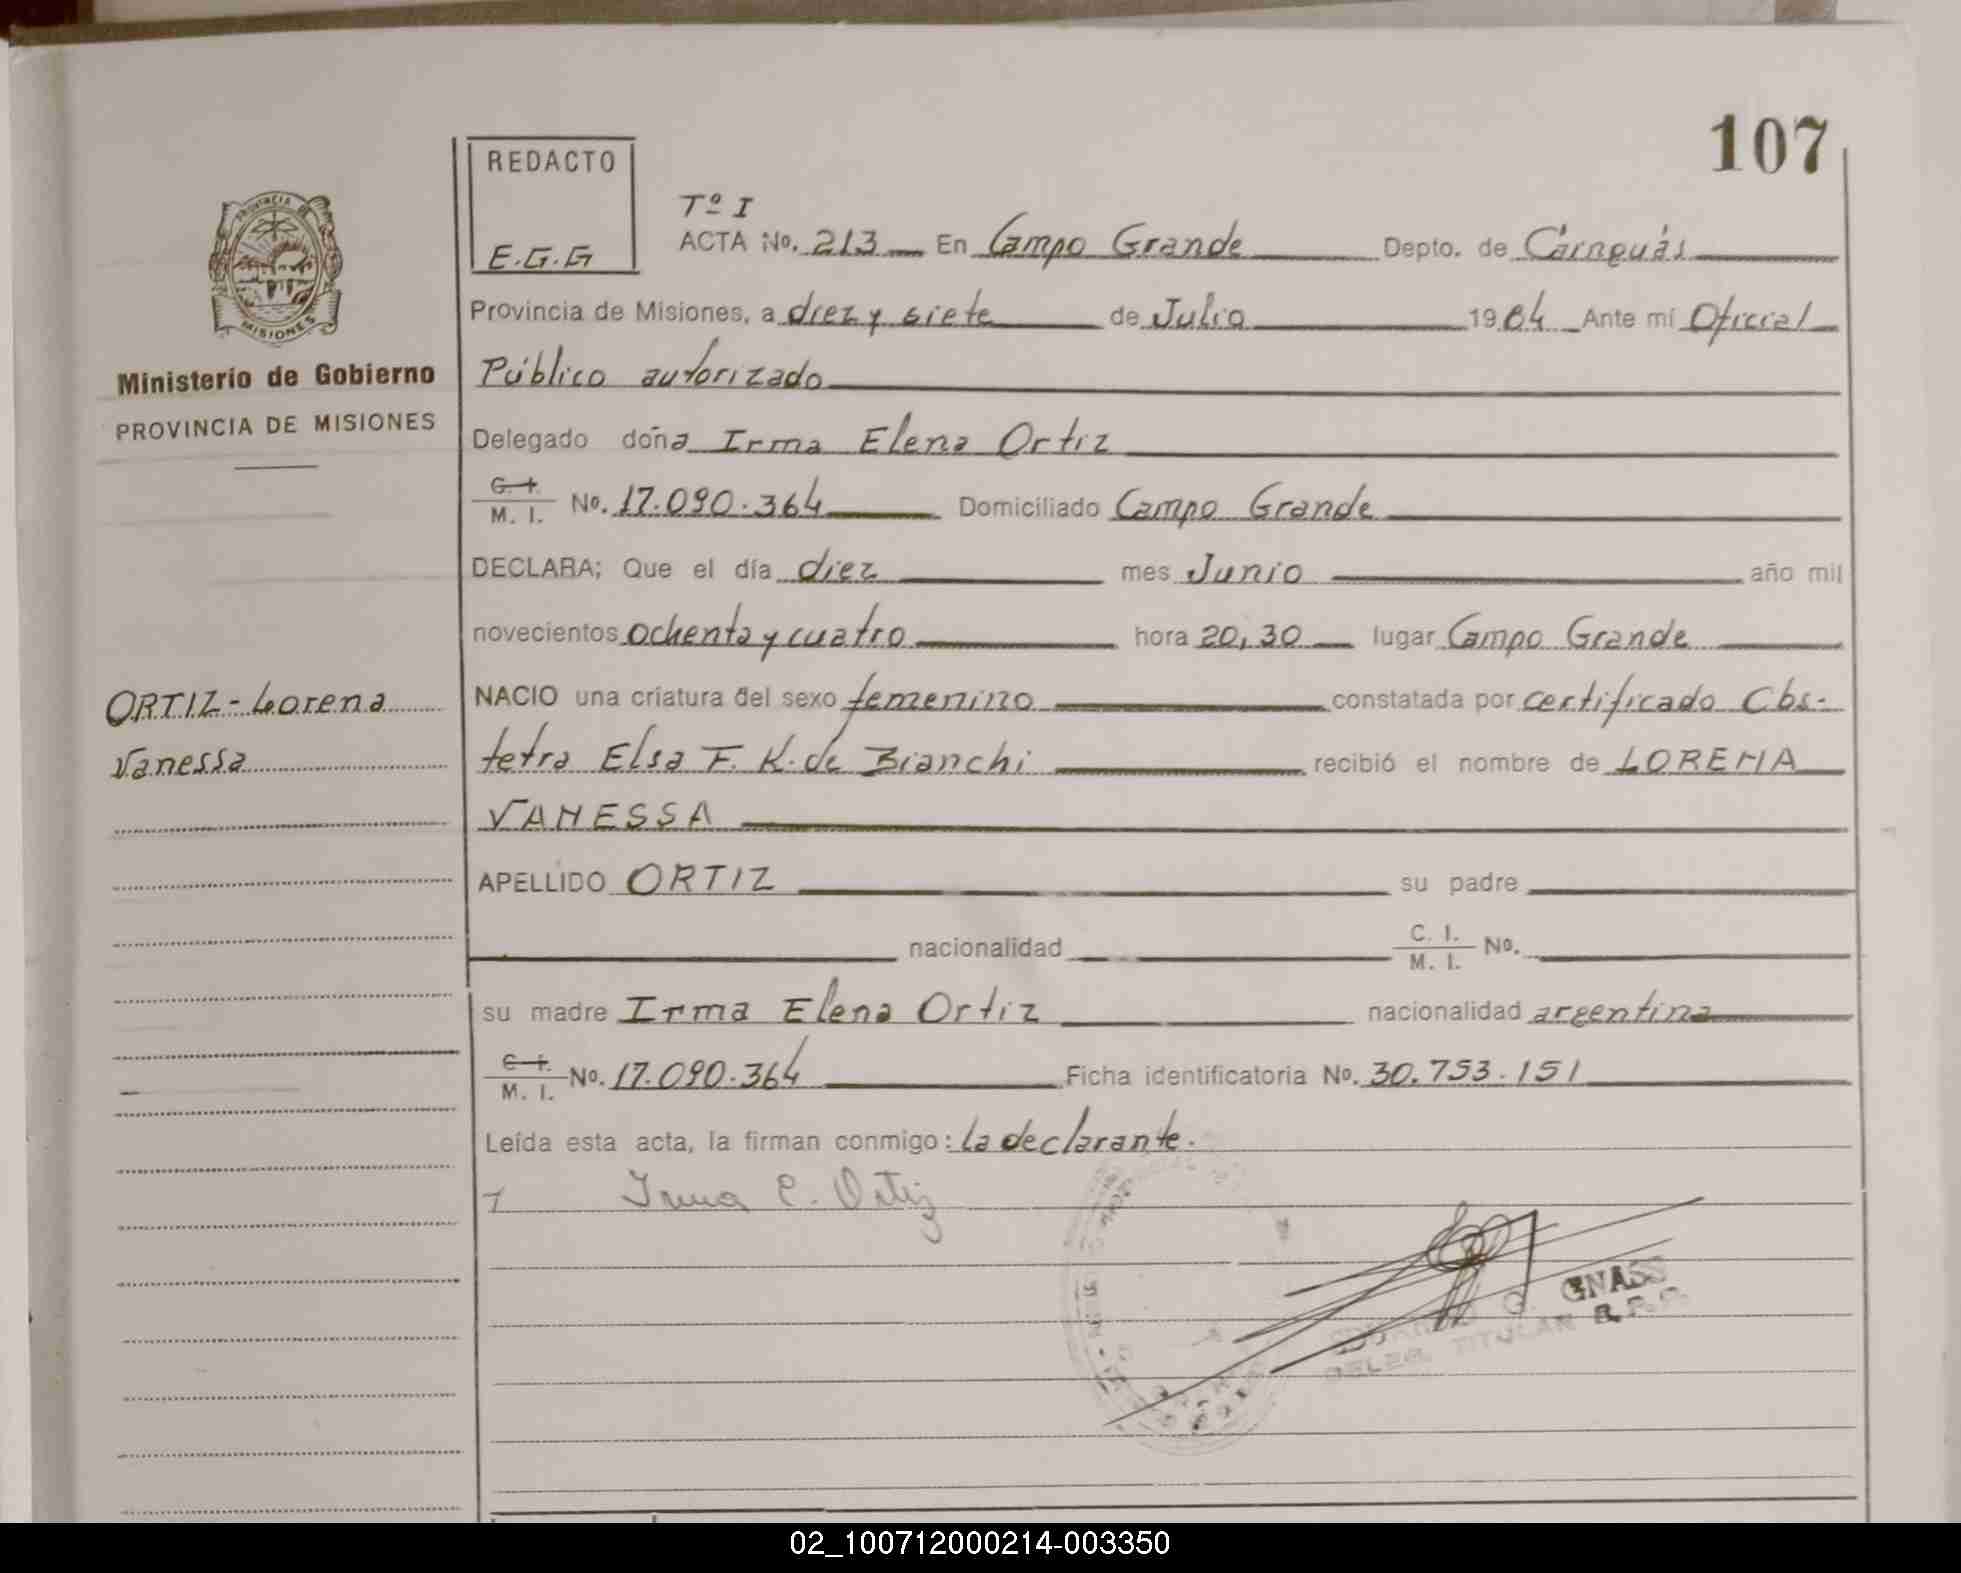 107
REDACTO
E.G.G
PROVINCIA DE
MISIONES
Tº I
ACTA No. 213 En Campo Grande Depto. de Cainguás
Provincia de Misiones, a diez y siete de Julio 1984 Ante mí Oficial
Ministerio de Gobierno
Público autorizado
PROVINCIA DE MISIONES
Delegado doña Irma Elena Ortiz
C. I. M. I. No. 17.090.364 Domiciliado Campo Grande
DECLARA; Que el día diez mes Junio año mil
novecientos ochenta y cuatro hora 20,30 lugar Campo Grande
ORTIZ - Lorena
Vanessa
NACIO una criatura del sexo femenino constatada por certificado Obs-
tetra Elsa F. K. de Bianchi recibió el nombre de LORENA
VANESSA
APELLIDO ORTIZ su padre
nacionalidad C. I. M. I. No.
su madre Irma Elena Ortiz nacionalidad argentina
C. I. M. I. No. 17.090.364 Ficha identificatoria No. 30.753.151
Leída esta acta, la firman conmigo: la declarante.
Irma E. Ortiz
G. GNASS
DELEG. TITULAR R.P.P.
02_100712000214-003350